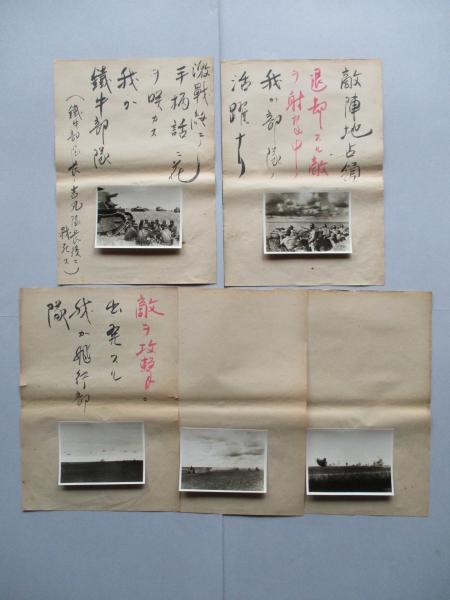 敵陣地占領
退却スル敵
ヲ射撃中ノ
我カ部隊ノ
活躍
手柄話ニ花
ヲ咲カス
我カ
鐵牛部隊
(鐵牛部隊長吉丸隊長後ニ
戦死ス)
敵ヲ攻撃ニ
出発スル
我カ飛行部
隊